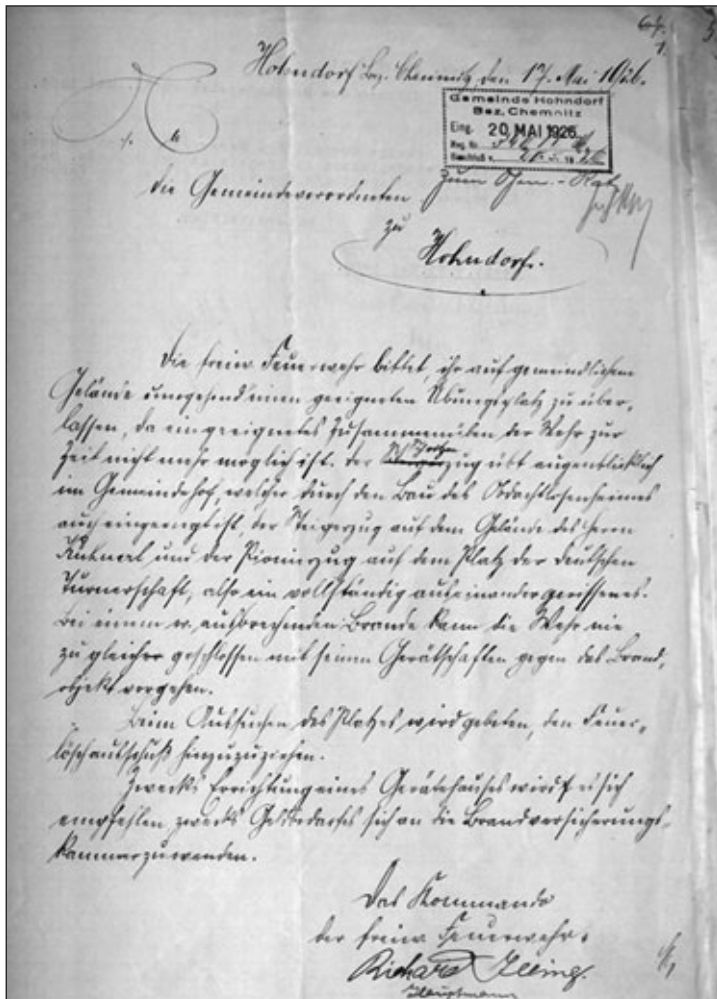 Hohndorf Bez. Chemnitz, den 17. Mai 1926.
Gemeinde Hohndorf
Bez. Chemnitz
Eing. 20. MAI 1926
Reg. Nr.
Beschluß v. 19 26
An
die Gemeindeverordneten
zum Gem.-Rat
zu
Hohndorf.
Die freiw. Feuerwehr bittet, ihr auf gemeindlichem
Gelände umgehend einen geeigneten Übungsplatz zu über-
lassen, da ein geeignetes Zusammenüben der Wehr zur
Zeit nicht mehr möglich ist. Der zug übt augenblicklich
im Gemeindehof, welcher durch den Bau des Obdachlosenheimes
auch eingeengt ist, der Steigerzug auf dem Gelände des Herrn
und der Pionierzug auf dem Platz der Deutschen
Turnerschaft, also ein vollständig auseinander gerissenes.
Bei einem ev. ausbrechenden Brande kann die Wehr nie
zu gleicher geschlossen mit seinen Gerätschaften gegen das Brand-
objekt vorgehen.
Beim Aussuchen des Platzes wird gebeten, den Feuer-
löschausschuß hinzuzuziehen.
Zwecks Errichtung eines Gerätehauses wird es sich
empfehlen zwecks Geldbedarfes sich an die Brandversicherungs-
kammer zu wenden.
Das Kommando
der freiw. Feuerwehr.
Richard Illing.
Hauptmann